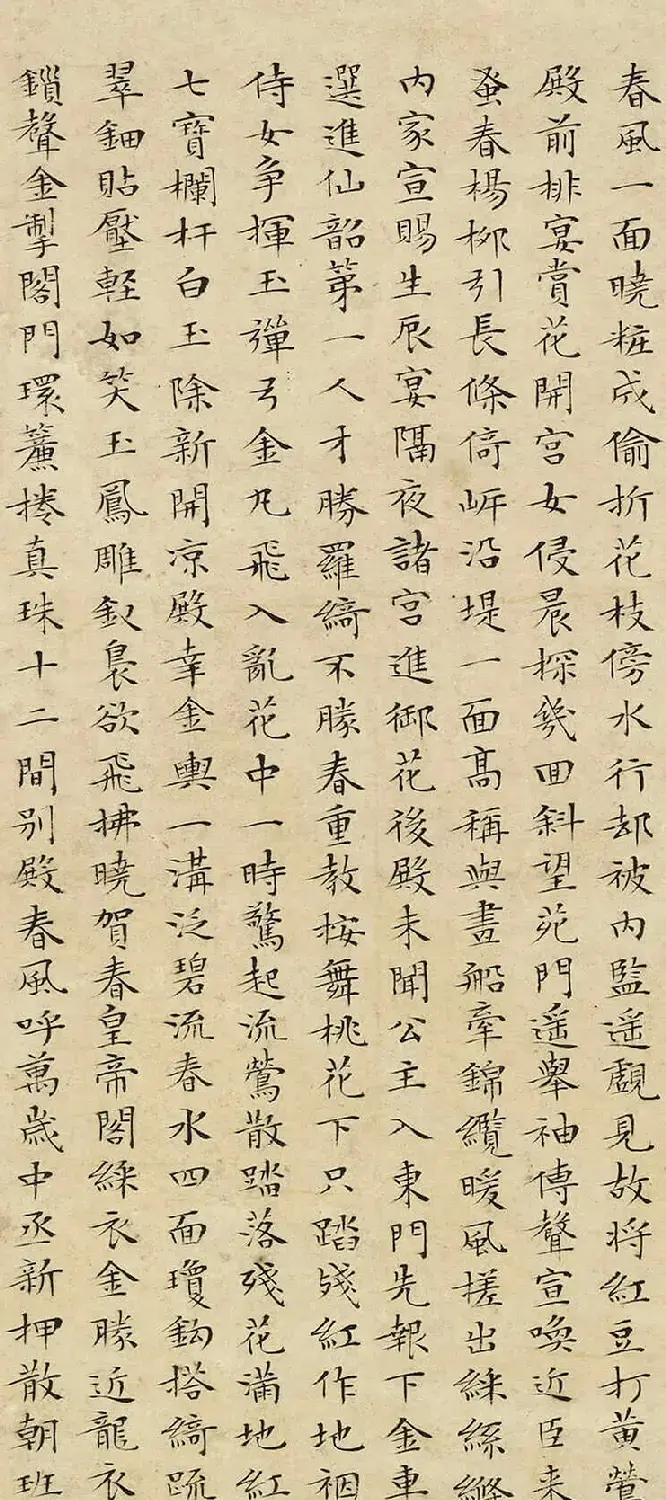 春風一面曉粧成偷折花枝傍水行却被内監遥覷見故将紅豆打黄鶯
殿前排宴賞花開宫女侵晨探幾回斜望苑門遥舉袖傳聲宣喚近臣来
蚤春楊柳引長條倚岍沿堤一面髙稱與畫船牽錦纜暖風搓出綵絲絛
内家宣賜生辰宴隔夜諸宫進御花後殿未聞公主入東門先報下金車
選進仙韶第一人才勝羅綺不勝春重教按舞桃花下只踏残紅作地裀
侍女争揮玉彈弓金丸飛入亂花中一時驚起流鶯散踏落殘花滿地紅
七寶欄杆白玉除新開凉殿幸金輿一溝泛碧流春水四面瓊鈎搭綺疏
翠鈿貼靨輕如笑玉鳳雕釵裊欲飛拂曉賀春皇帝閣綵衣金勝近龍衣
鎖聲金掣閣門環簾捲真珠十二間别殿春風呼萬歲中丞新押散朝班